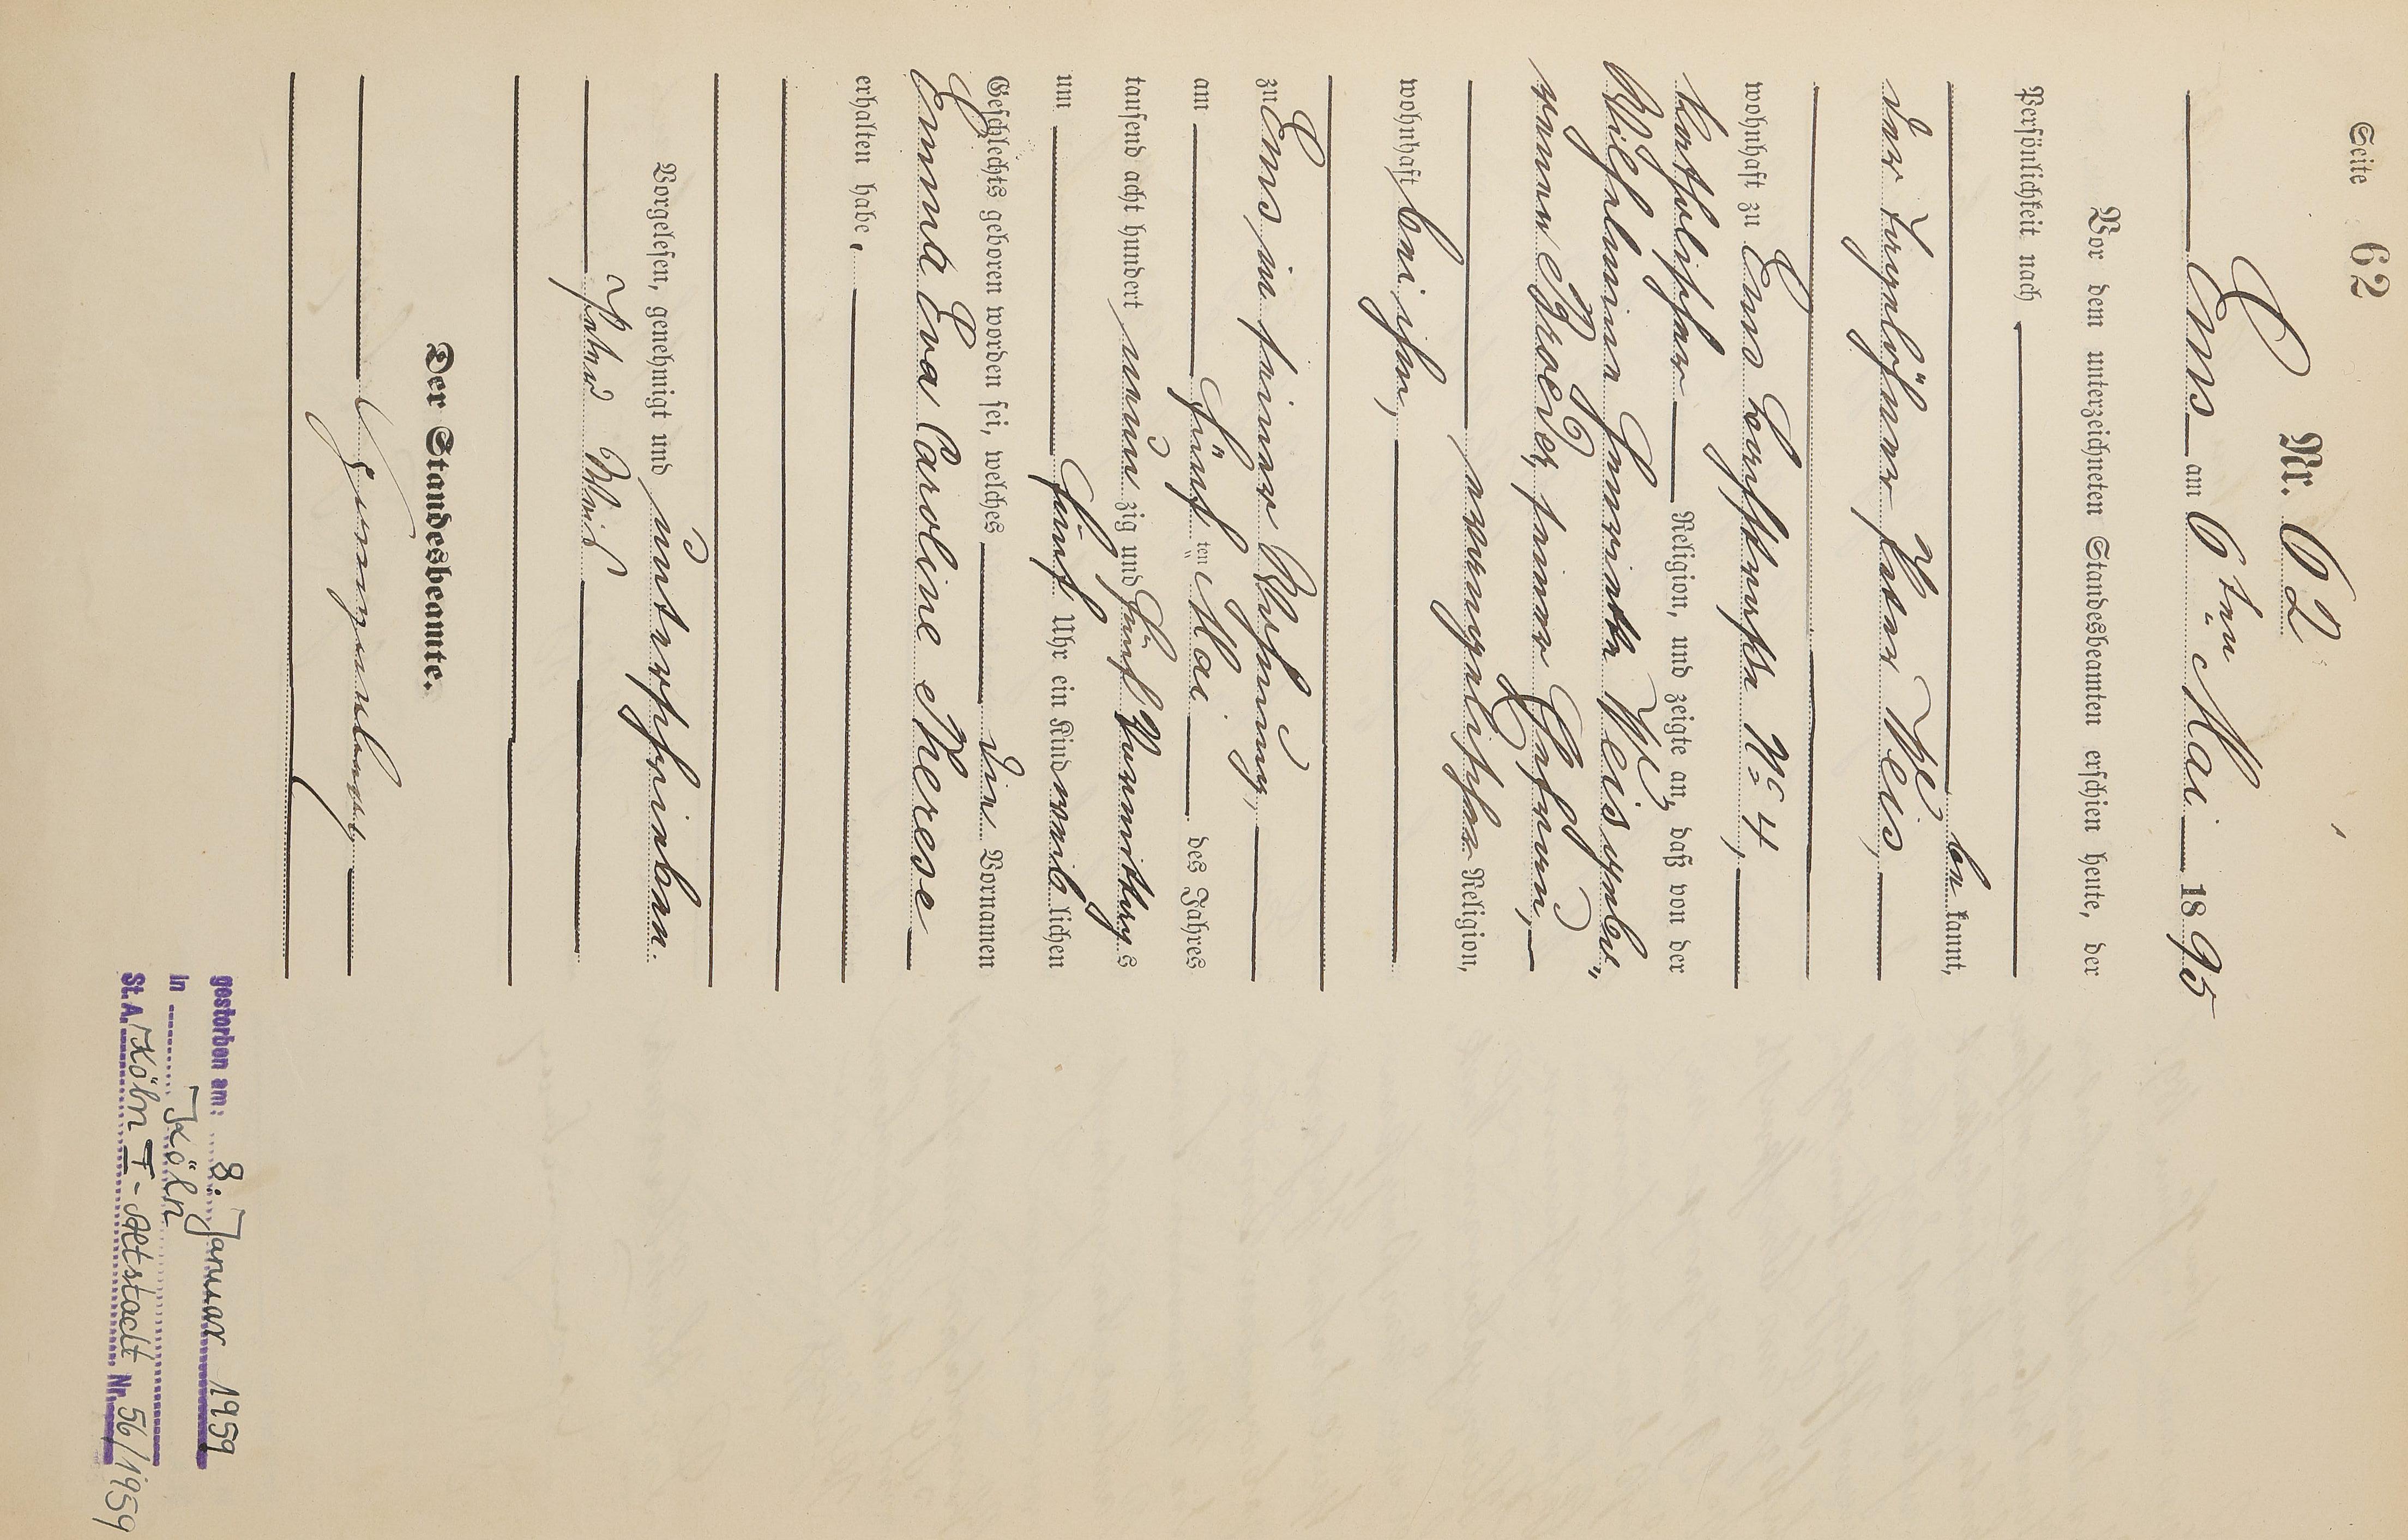 Seite 62
Nr. 62
Ems am 6ten Mai 1895
Vor dem unterzeichneten Standesbeamten erschien heute, der
Persönlichkeit nach
be kannt,
der Tagelöhner Peter Weis,
wohnhaft zu Ems Bachstraße No 4,
katholischer Religion, und zeigte an, daß von der
Wilhelmina Henriette Weis gebo-
renen Broeder, seiner Ehefrau,
evangelischer Religion,
wohnhaft bei ihm,
zu Ems in seiner Wohnung,
am fünf ten Mai des Jahres
tausend acht hundert neun zig und fünf Vormittag s
um fünf Uhr ein Kind weib lichen
Geschlechts geboren worden sei, welches die Vornamen
Emma Eva Caroline Therese
erhalten habe.
Vorgelesen, genehmigt und unterschrieben.
Peter Weis
Der Standesbeamte.
gestorben am: 8. Januar 1959
in Köln
St. A. Köln I - Altstadt Nr. 56/1959